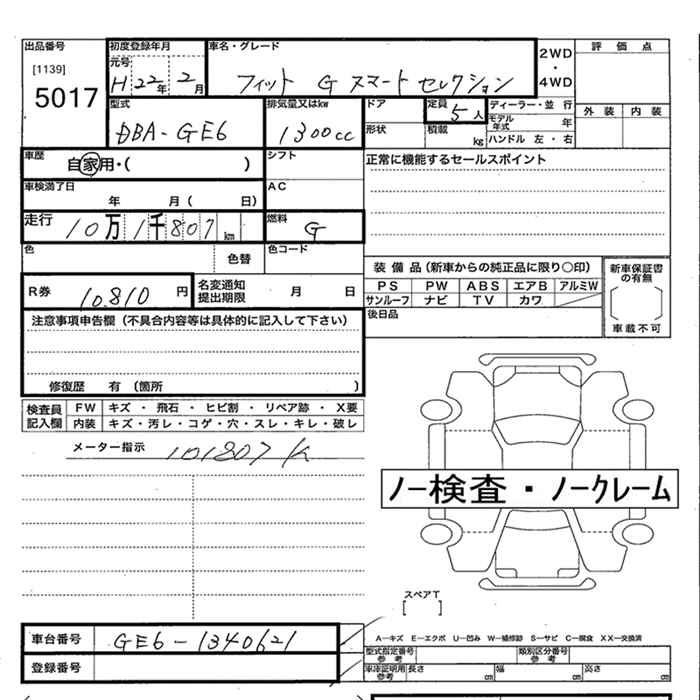 出品番号
[1139]
5017
初度登録年月
元号
H22年2月
車名・グレード
フィット G スマートセレクション
2WD
・
4WD
評価点
外装 内装
型式
DBA-GE6
排気量又はkw
1300cc
ドア
定員
5人
形状
積載
kg
ディーラー・並行
モデル年式 年
ハンドル 左・右
車歴
自家用・( )
シフト
正常に機能するセールスポイント
車検満了日
年 月( 日)
AC
走行
10万1千807km
燃料
G
色
色替
色コード
装備品(新車からの純正品に限り○印)
PS PW ABS エアB アルミW
サンルーフ ナビ TV カワ
新車保証書の有無
車載不可
R券
10.810円
名変通知
提出期限
月 日
後日品
注意事項申告欄(不具合内容等は具体的に記入して下さい)
修復歴 有(箇所 )
検査員
記入欄
FW キズ・飛石・ヒビ割・リペア跡・X要
内装 キズ・汚レ・コゲ・穴・スレ・キレ・破レ
メーター指示 101807K
ノー検査・ノークレーム
スペアT
[ ]
車台番号 GE6-1340621
登録番号
A―キズ E―エクボ U―凹み W―補修跡 S―サビ C―腐食 XX―交換済
型式指定番号
参考
類別区分番号
参考
車庫証明用
参考
長さ cm 幅 cm 高さ cm